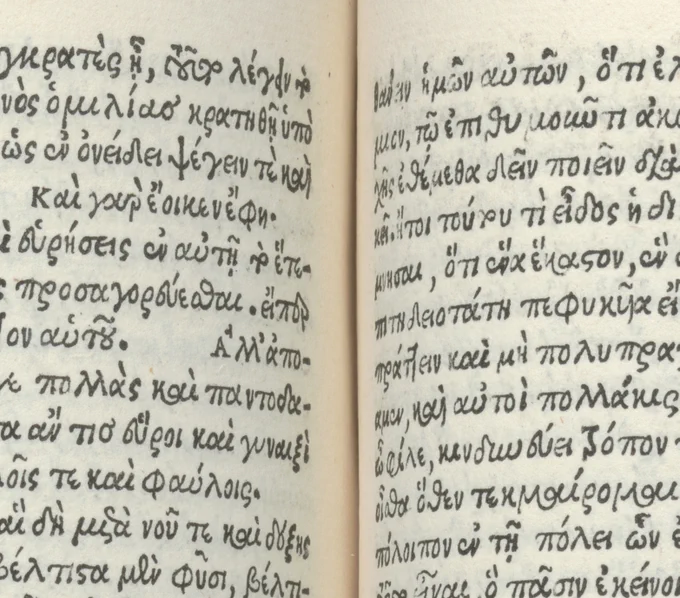 γκρατὲς ᾖ, τοῦτο λέγειν τὸ
νὸς ὁμιλίασ κρατηθῇ ὑπὸ
ὡς ἐν ὀνείδει ψέγειν τὲ καὶ
Καὶ γὰρ ἔοικεν ἔφη.
ὶ εὑρήσεις ἐν αὐτῇ τὸ ἕτε-
ς προσαγορεύεσθαι. εἴπερ
τον αὑτοῦ. Ἀλλ' ἀπο-
πολλὰς καὶ παντοδα-
τα ἄν τισ εὕροι καὶ γυναιξὶ
λοῖς τε καὶ φαύλοις.
αἳ δὴ μετὰ νοῦ τε καὶ δόξης
βέλτιστα μὲν φῦσι, βέλτι-
ἡμῶν αὐτῶν, ὅτι ἐλ
μεν, τῷ ἐπιθυμοῦντι ἀκ
χῆς ἐθέμεθα δεῖν ποιεῖν διὰ
ἤτοι τούτου τὶ εἶδος ἡ δι
μνησαι, ὅτι ἕνα ἕκαστον, ἓν
πιτηδειοτάτη πεφυκῦα εἴ
πράττειν καὶ μὴ πολυπραγ
αμεν, καὶ αὐτοὶ πολλάκις
ὦ φίλε, κινδυνεύει τρόπον τ
οἶσθα ὅθεν τεκμαίρομαι
πόλοιπον ἐν τῇ πόλει ὧν ἐ
εἶναι, ὃ πᾶσιν ἐκείνοι